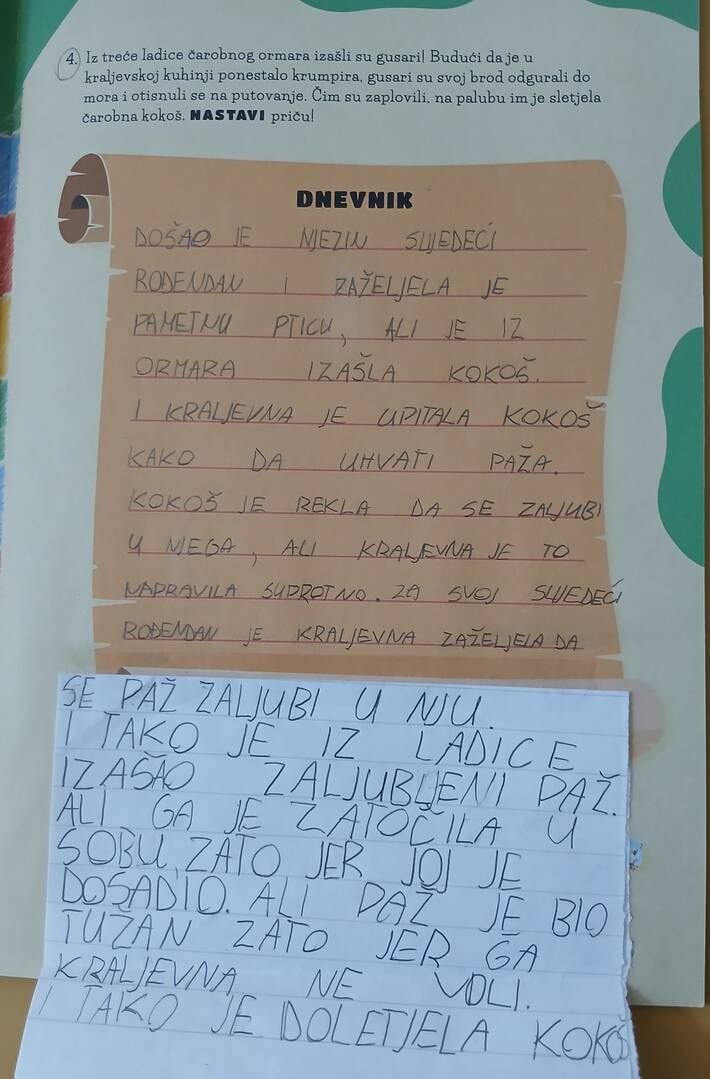 4. Iz treće ladice čarobnog ormara izašli su gusari! Budući da je u
kraljevskoj kuhinji ponestalo krumpira, gusari su svoj brod odgurali do
mora i otisnuli se na putovanje. Čim su zaplovili, na palubu im je sletjela
čarobna kokoš. NASTAVI priču!
DNEVNIK
DOŠAO JE NJEZIN SLJEDEĆI
ROĐENDAN I ZAŽELJELA JE
PAMETNU PTICU, ALI JE IZ
ORMARA IZAŠLA KOKOŠ.
I KRALJEVNA JE UPITALA KOKOŠ
KAKO DA UHVATI PAŽA.
KOKOŠ JE REKLA DA SE ZALJUBI
U NJEGA, ALI KRALJEVNA JE TO
NAPRAVILA SUPROTNO. ZA SVOJ SLJEDEĆI
ROĐENDAN JE KRALJEVNA ZAŽELJELA DA
SE PAŽ ZALJUBI U NJU.
I TAKO JE IZ LADICE
IZAŠAO ZALJUBLJENI PAŽ.
ALI GA JE ZATOČILA U
SOBU, ZATO JER JOJ JE
DOSADIO. ALI PAŽ JE BIO
TUŽAN ZATO JER GA
KRALJEVNA NE VOLI.
I TAKO JE DOLETJELA KOKOŠ